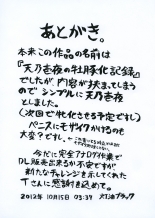 あとがき。
本来この作品の名前は
『天乃壱夜の牡豚化記録』
でしたが、内容が狭まってしまう
のでシンプルに天乃壱夜
としました。
(次回で牝化させる予定です)
ペニスにモザイクかけるのも
大変です。
未だに完全アナログ作業で
DL販売出来るか不安ですが
新たなチャレンジを示してくれた
Tさんに感謝を込めて。
2012年10月15日 03:39